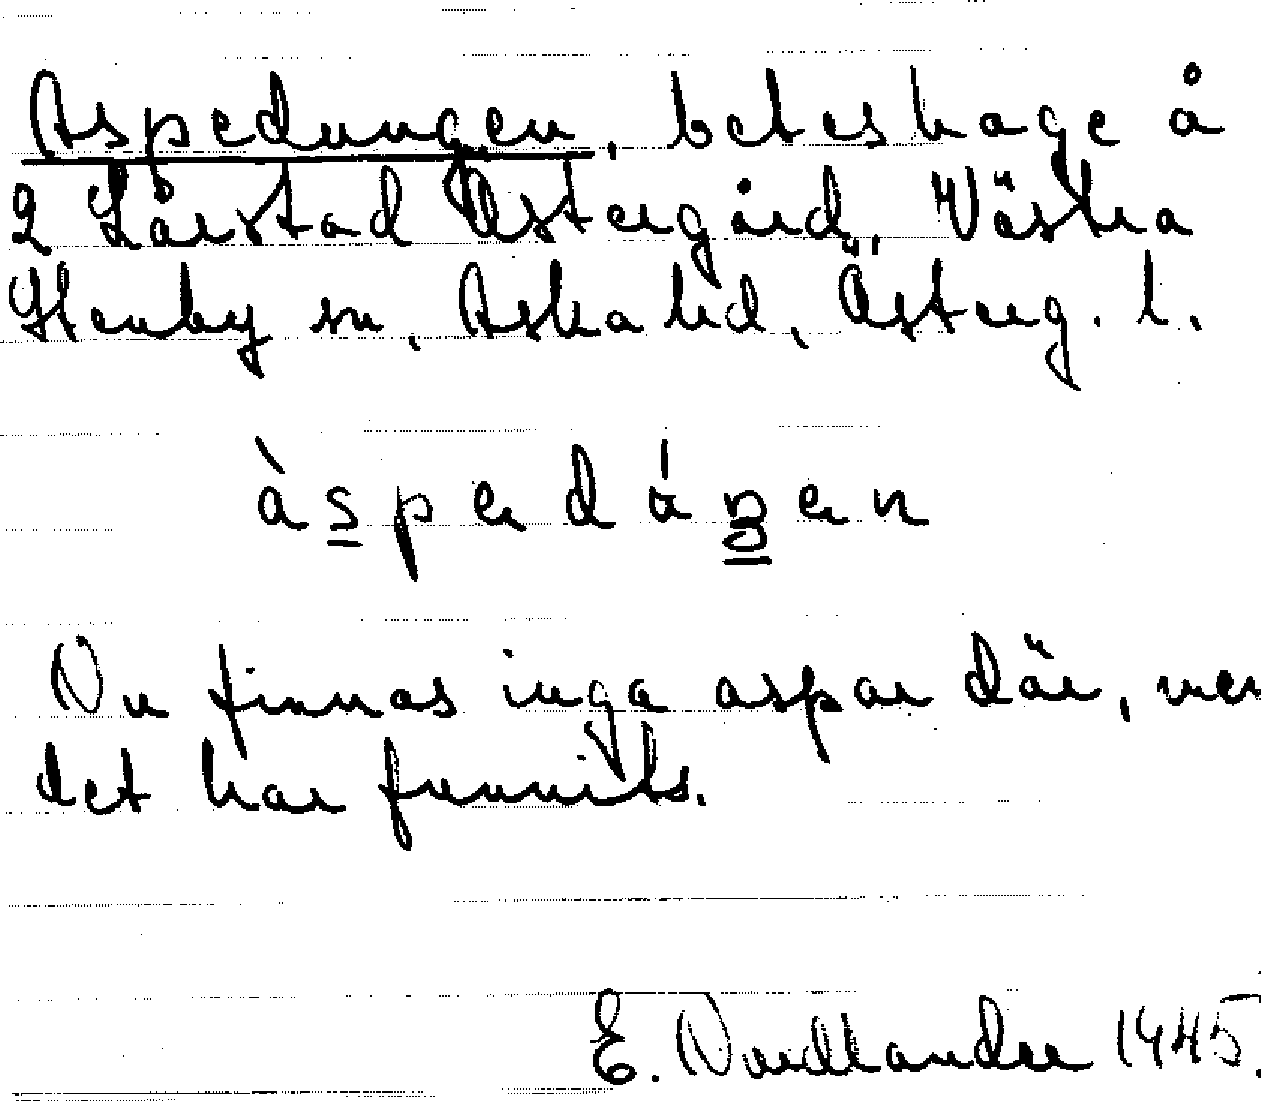 Aspedungen, beteshage å
2 Lårstad Östergård, Västra
Stenby sn, Aska hd, Österg. l.
àspedáŋen
Nu finnas inga aspar där, men
det har funnits.
E. Nordlander 1945.